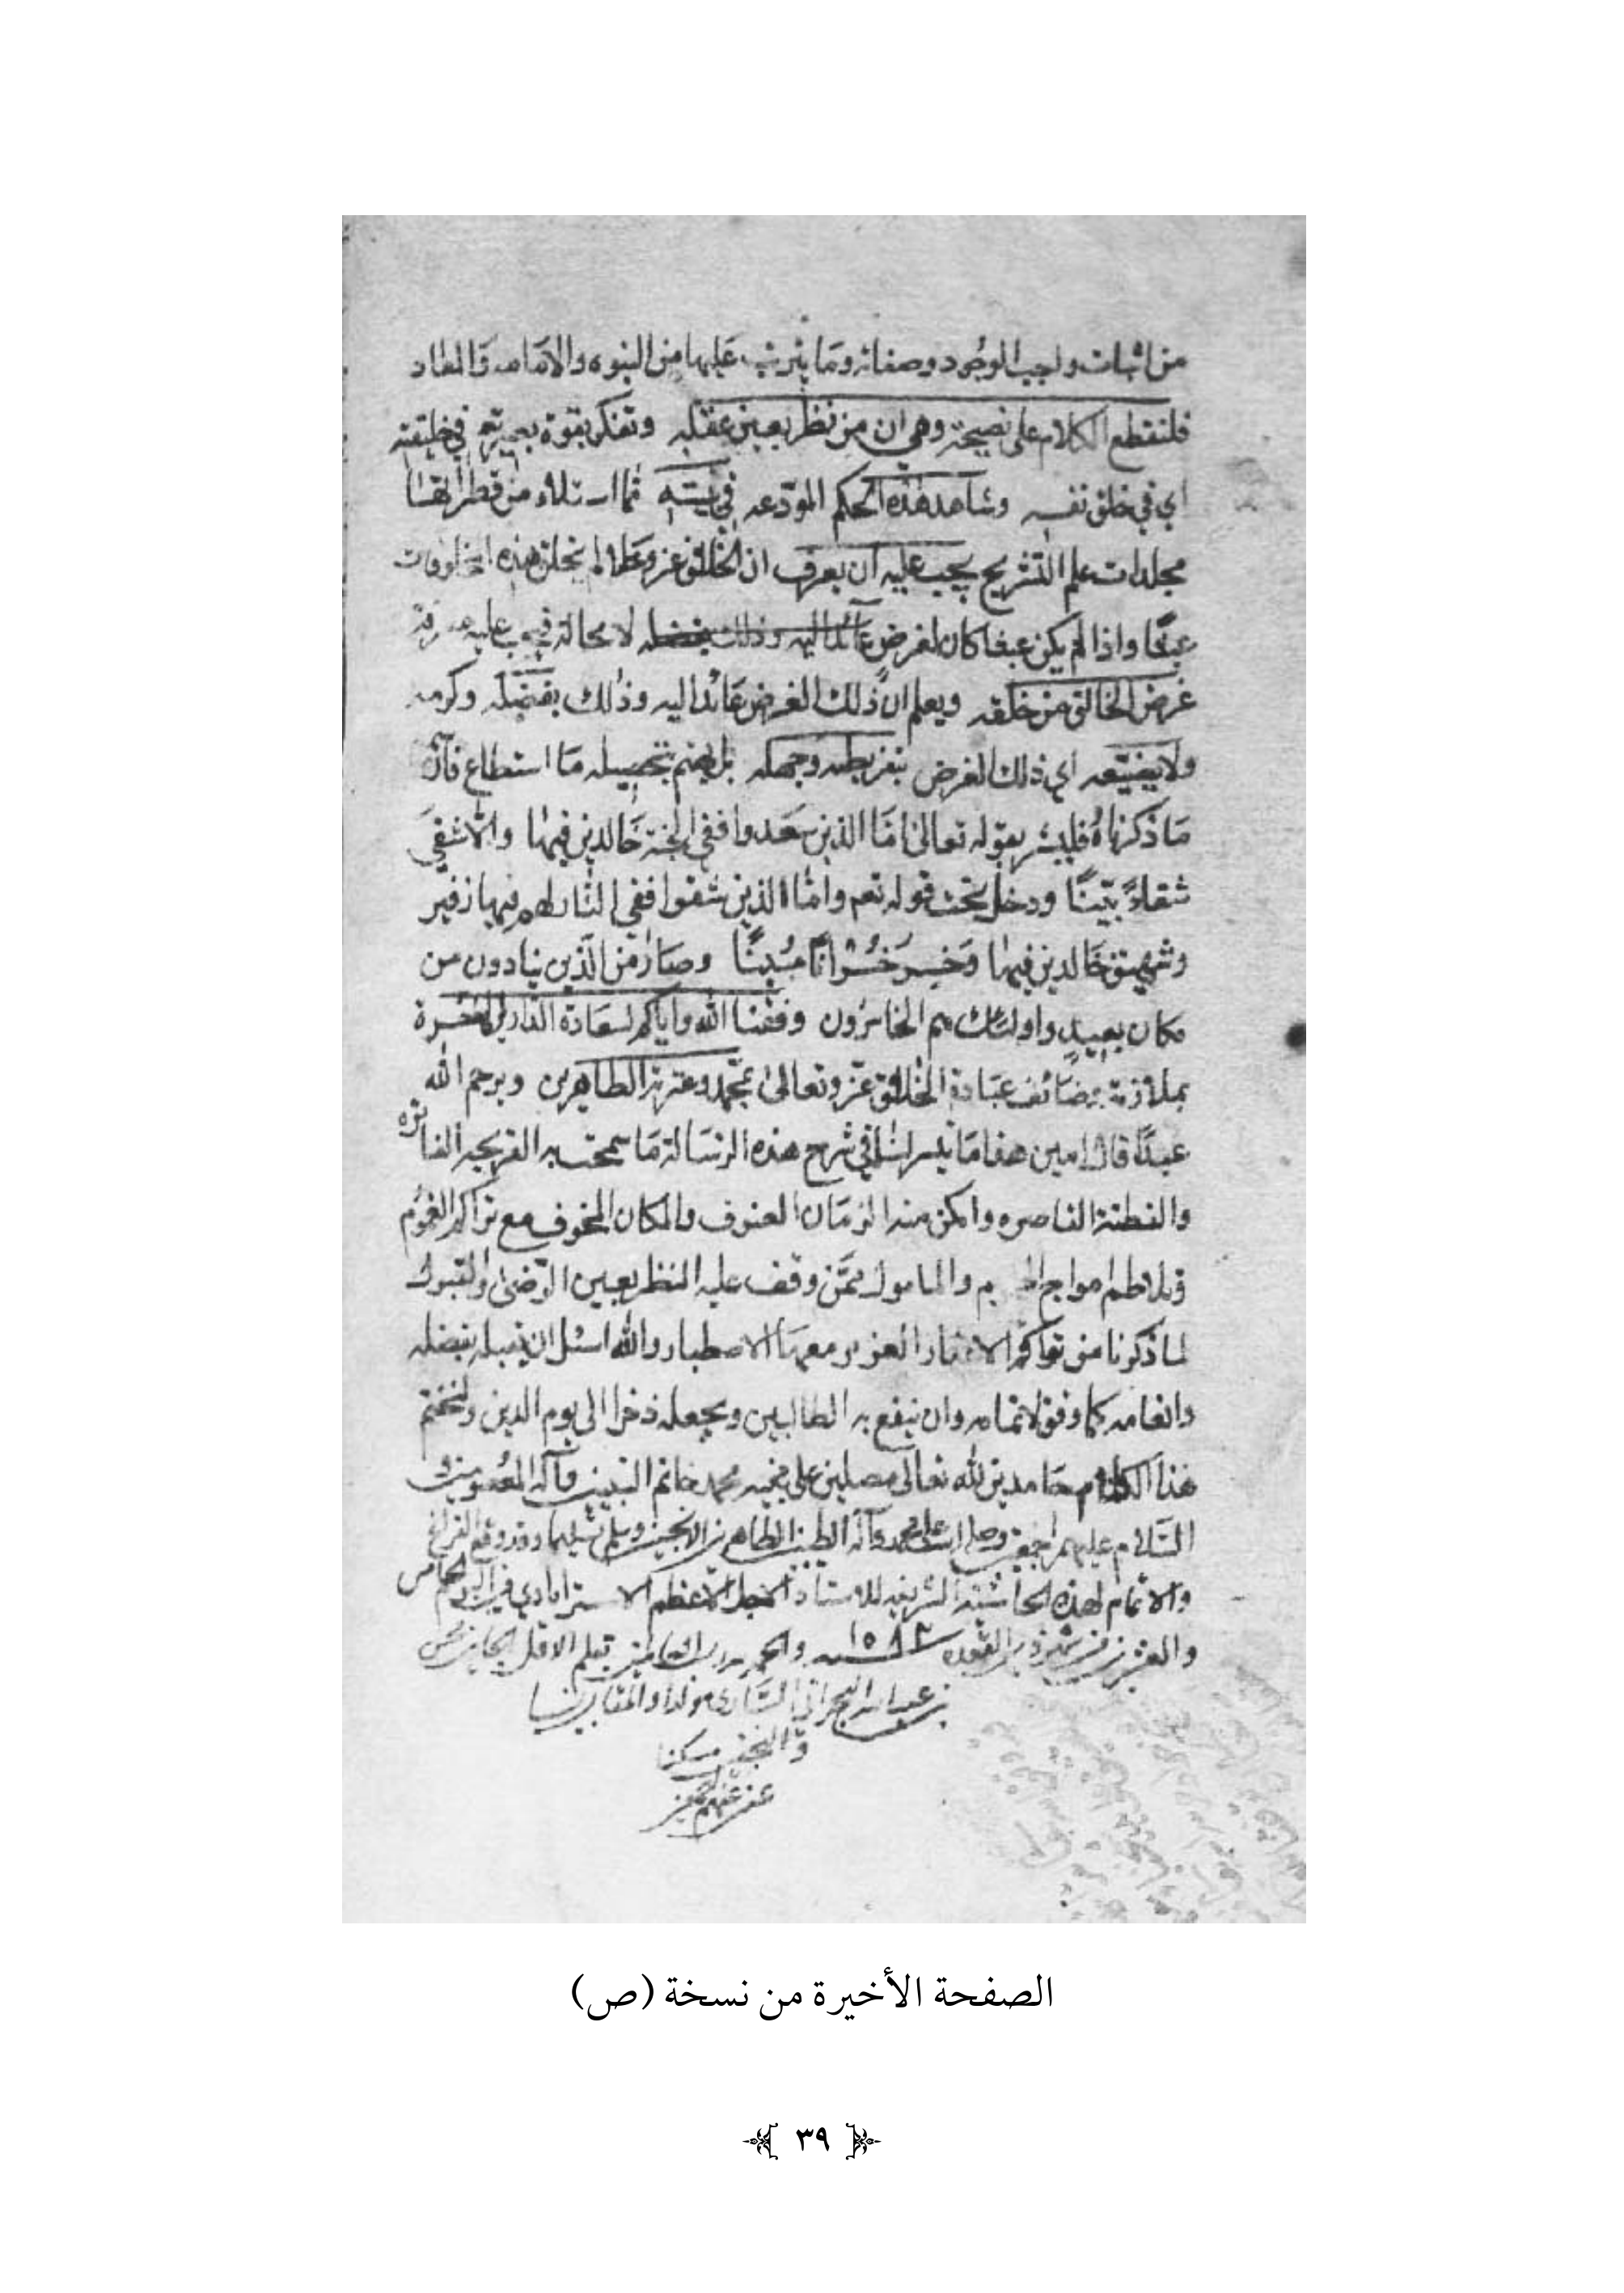 من اثبات واجب الوجود وصفاته وما يترتب عليها من النبوه والامامه والمعاد
فلنقطع الكلام على نصيحة وهي ان من نظر بعين عقله وتفكر بقوة بصيرته في خليقته
اي في خلق نفسه وشاهد هذه الحكم المودعه في بنيته مما امتلاء من
مجلدات علم التشريح يجب عليه ان يعرف ان الخالق عز وعلا لم يخلق هذه المخلوقات
عبثا واذا لم يكن عبثا كان لغرض عائدا اليه وذلك بفضله لا محالة فيجب عليه معرفة
غرض الخالق من خلقه ويعلم ان ذلك الغرض عائدا اليه وذلك بفضله وكرمه
ولا يضيعه اي ذلك الغرض بتفريطه وجهله بل يهتم بتحصيله ما استطاع فان
ما ذكرناه فليبشر بقوله تعالى اما الذين سعدوا ففي الجنة خالدين فيها والا شقي
شقاءً بيّنًا ودخل تحت قوله تعم واما الذين شقوا ففي النار لهم فيها زفير
وشهيق خالدين فيها وخسر خسرانا مبينا وصار من الذين ينادون من
مكان بعيد واولئك هم الخاسرون وفقنا الله واياكم لسعادة الدارين
بملازمة وضائف عبادة الخالق عز وتعالى بمحمد وعترته الطاهرين ويرحم الله
عبدًا قال امين هذا ما تيسر لنا في شرح هذه الرسالة ما سمحت به القريحه الفاتره
والفطنة القاصره وامكن منه الزمان العنوف والمكان المخوف مع تراكم الغموم
وتلاطم امواج والمامول ممن وقف عليه النظر بعين الرضى والقبول
لما ذكرنا من معها الاصطبار والله اسئل ان يقبله بفضله
وانعامه كما وفق لاتمامه وان ينفع به الطالبين ويجعله ذخرا الى يوم الدين ولنختم
هذا الكلام حامدين لله تعالى مصلين على نبيه محمد خاتم النبيين وآله المعصومين
السلام عليهم اجمعين وصلى الله على محمد وآله الطيبين الطاهرين وسلم تسليما وقد وقع الفراغ
والاتمام لهذه الحاشية الشريفه للاستاد الاجل الاعظم الاسترابادي في اليوم الخامس
والعشرين من شهر ذي القعده والحمد لله رب العالمين بقلم الاقل
بن عبد الله البحراني مولدا
والنجف مسكنا
الصفحة الأخيرة من نسخة (ص)
٣٩